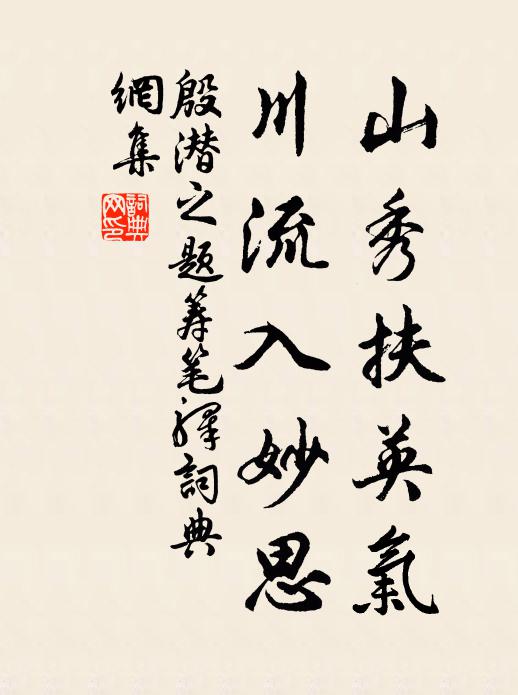 山秀扶英氣
川流入妙思
殷潜之题筹笔驛詞典
網集
詞典
网印